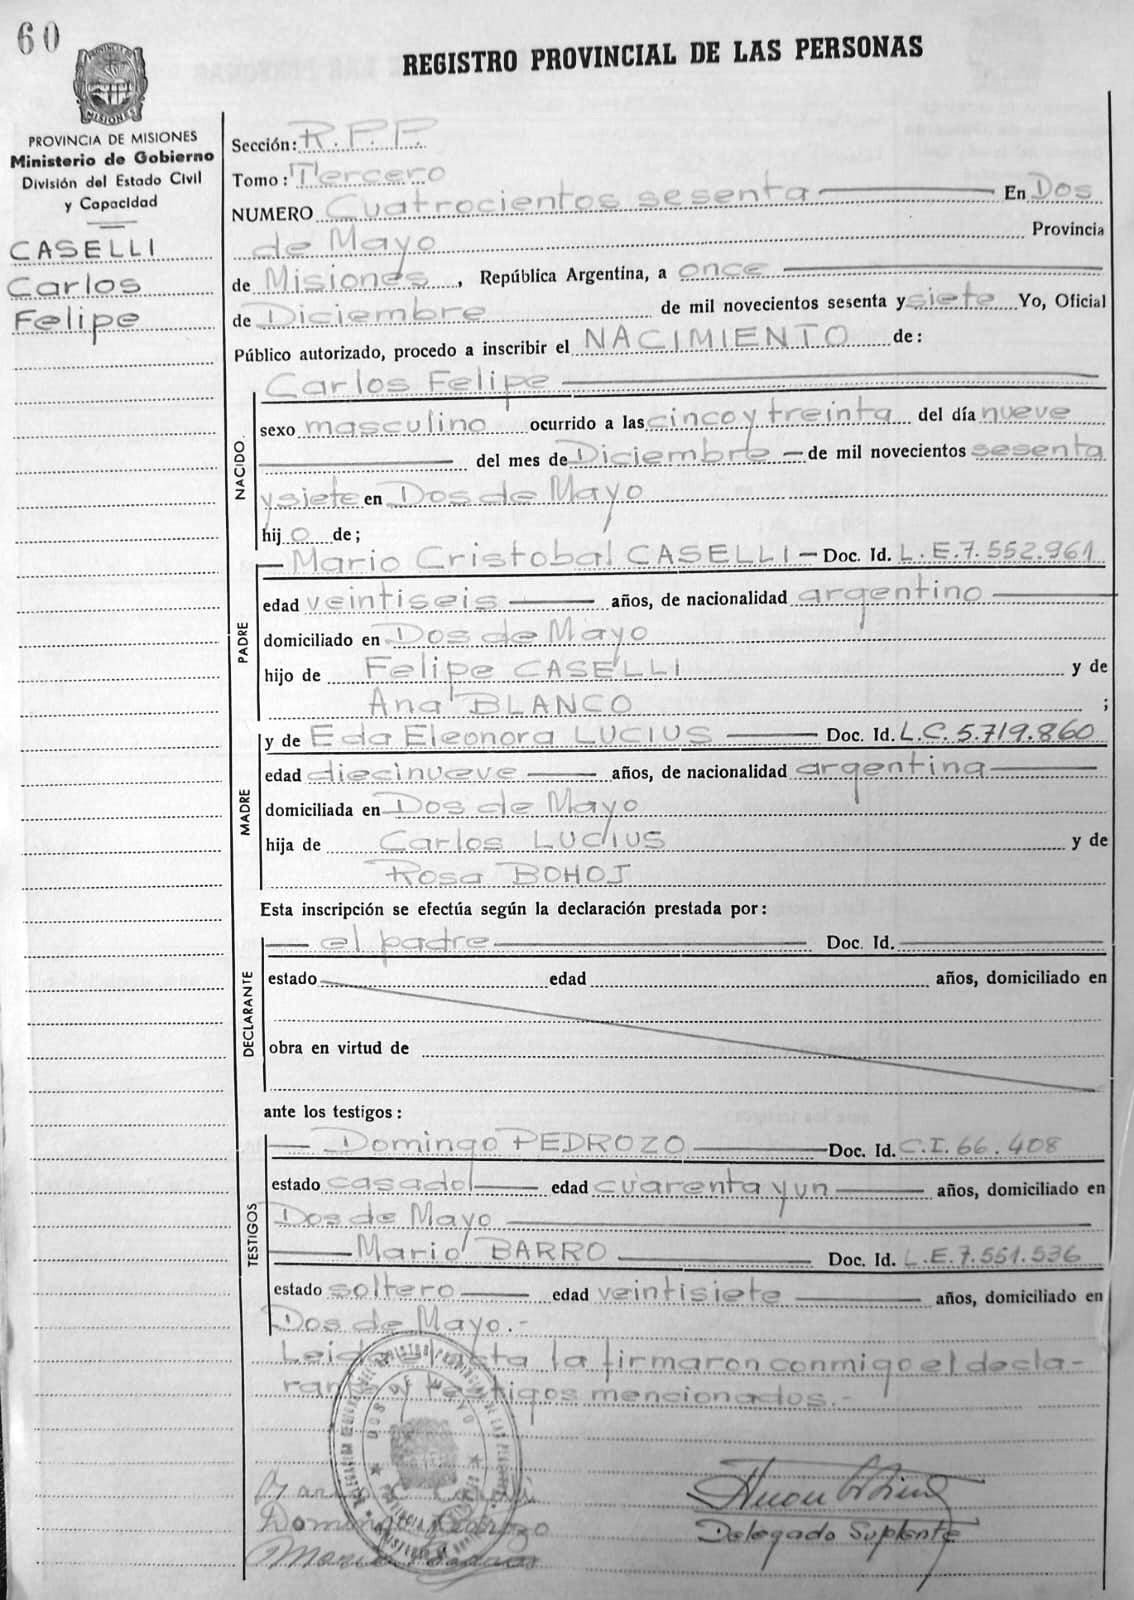 60
REGISTRO PROVINCIAL DE LAS PERSONAS
MISIONES
PROVINCIA DE MISIONES
Ministerio de Gobierno
División del Estado Civil
y Capacidad
CASELLI
Carlos
Felipe
Sección: R.P.P.
Tomo: Tercero
NUMERO Cuatrocientos sesenta En Dos
de Mayo Provincia
de Misiones, República Argentina, a once
de Diciembre de mil novecientos sesenta y siete Yo, Oficial
Público autorizado, procedo a inscribir el NACIMIENTO de:
NACIDO
Carlos Felipe
sexo masculino ocurrido a las cinco y treinta del día nueve
del mes de Diciembre de mil novecientos sesenta
y siete en Dos de Mayo
hij o de;
PADRE
Mario Cristobal CASELLI Doc. Id. L.E.7.552.961
edad veintiseis años, de nacionalidad argentino
domiciliado en Dos de Mayo
hijo de Felipe CASELLI y de
Ana BLANCO ;
MADRE
y de Eda Eleonora LUCIUS Doc. Id. L.C.5.719.860
edad diecinueve años, de nacionalidad argentina
domiciliada en Dos de Mayo
hija de Carlos LUCIUS y de
Rosa BOHOJ
Esta inscripción se efectúa según la declaración prestada por:
DECLARANTE
el padre Doc. Id.
estado edad años, domiciliado en
obra en virtud de
ante los testigos:
TESTIGOS
Domingo PEDROZO Doc. Id. C.I.66.408
estado casado edad cuarenta y un años, domiciliado en
Dos de Mayo
Mario BARRO Doc. Id. L.E.7.551.536
estado soltero edad veintisiete años, domiciliado en
Dos de Mayo.-
Leida acta la firmaron conmigo el decla-
rante y testigos mencionados.-
DOS DE MAYO
Domingo Pedrozo
Delegado Suplente